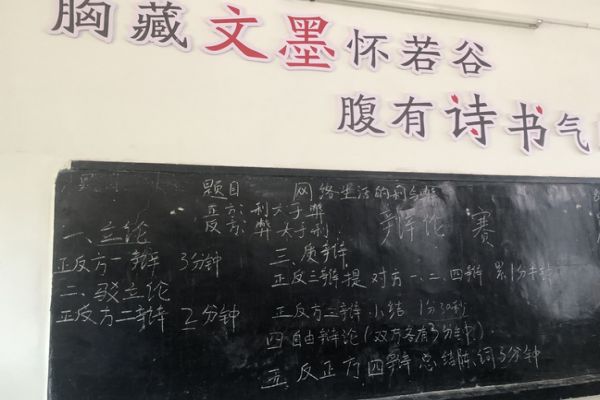 胸藏文墨怀若谷
腹有诗书气
题目 网络生活的利与弊
正方：利大于弊
反方：弊大于利
辩论赛
一、立论
正反方一辩 3分钟
二、驳立论
正反方二辩 2分钟
三、质辩
正反三辩提对方一、二、四辩
正反方三辩小结 1分30秒
四自由辩论（双方各有3分钟）
五 反正方四辩总结陈词3分钟